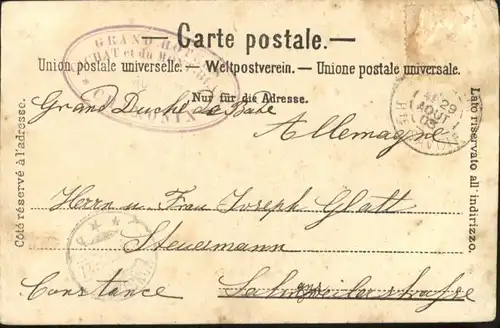 —Carte postale.—
Union postale universelle. — Weltpostverein. — Unione postale universale.
Nur für die Adresse.
GRAND HOT
HAT et du M
Grand Duché de Bade
Allemagne
29
AOUT
Côté réservé à l'adresse.
Lato riservato all' indirizzo.
Herrn u. Frau Joseph Glatt
Steuermann
Constance